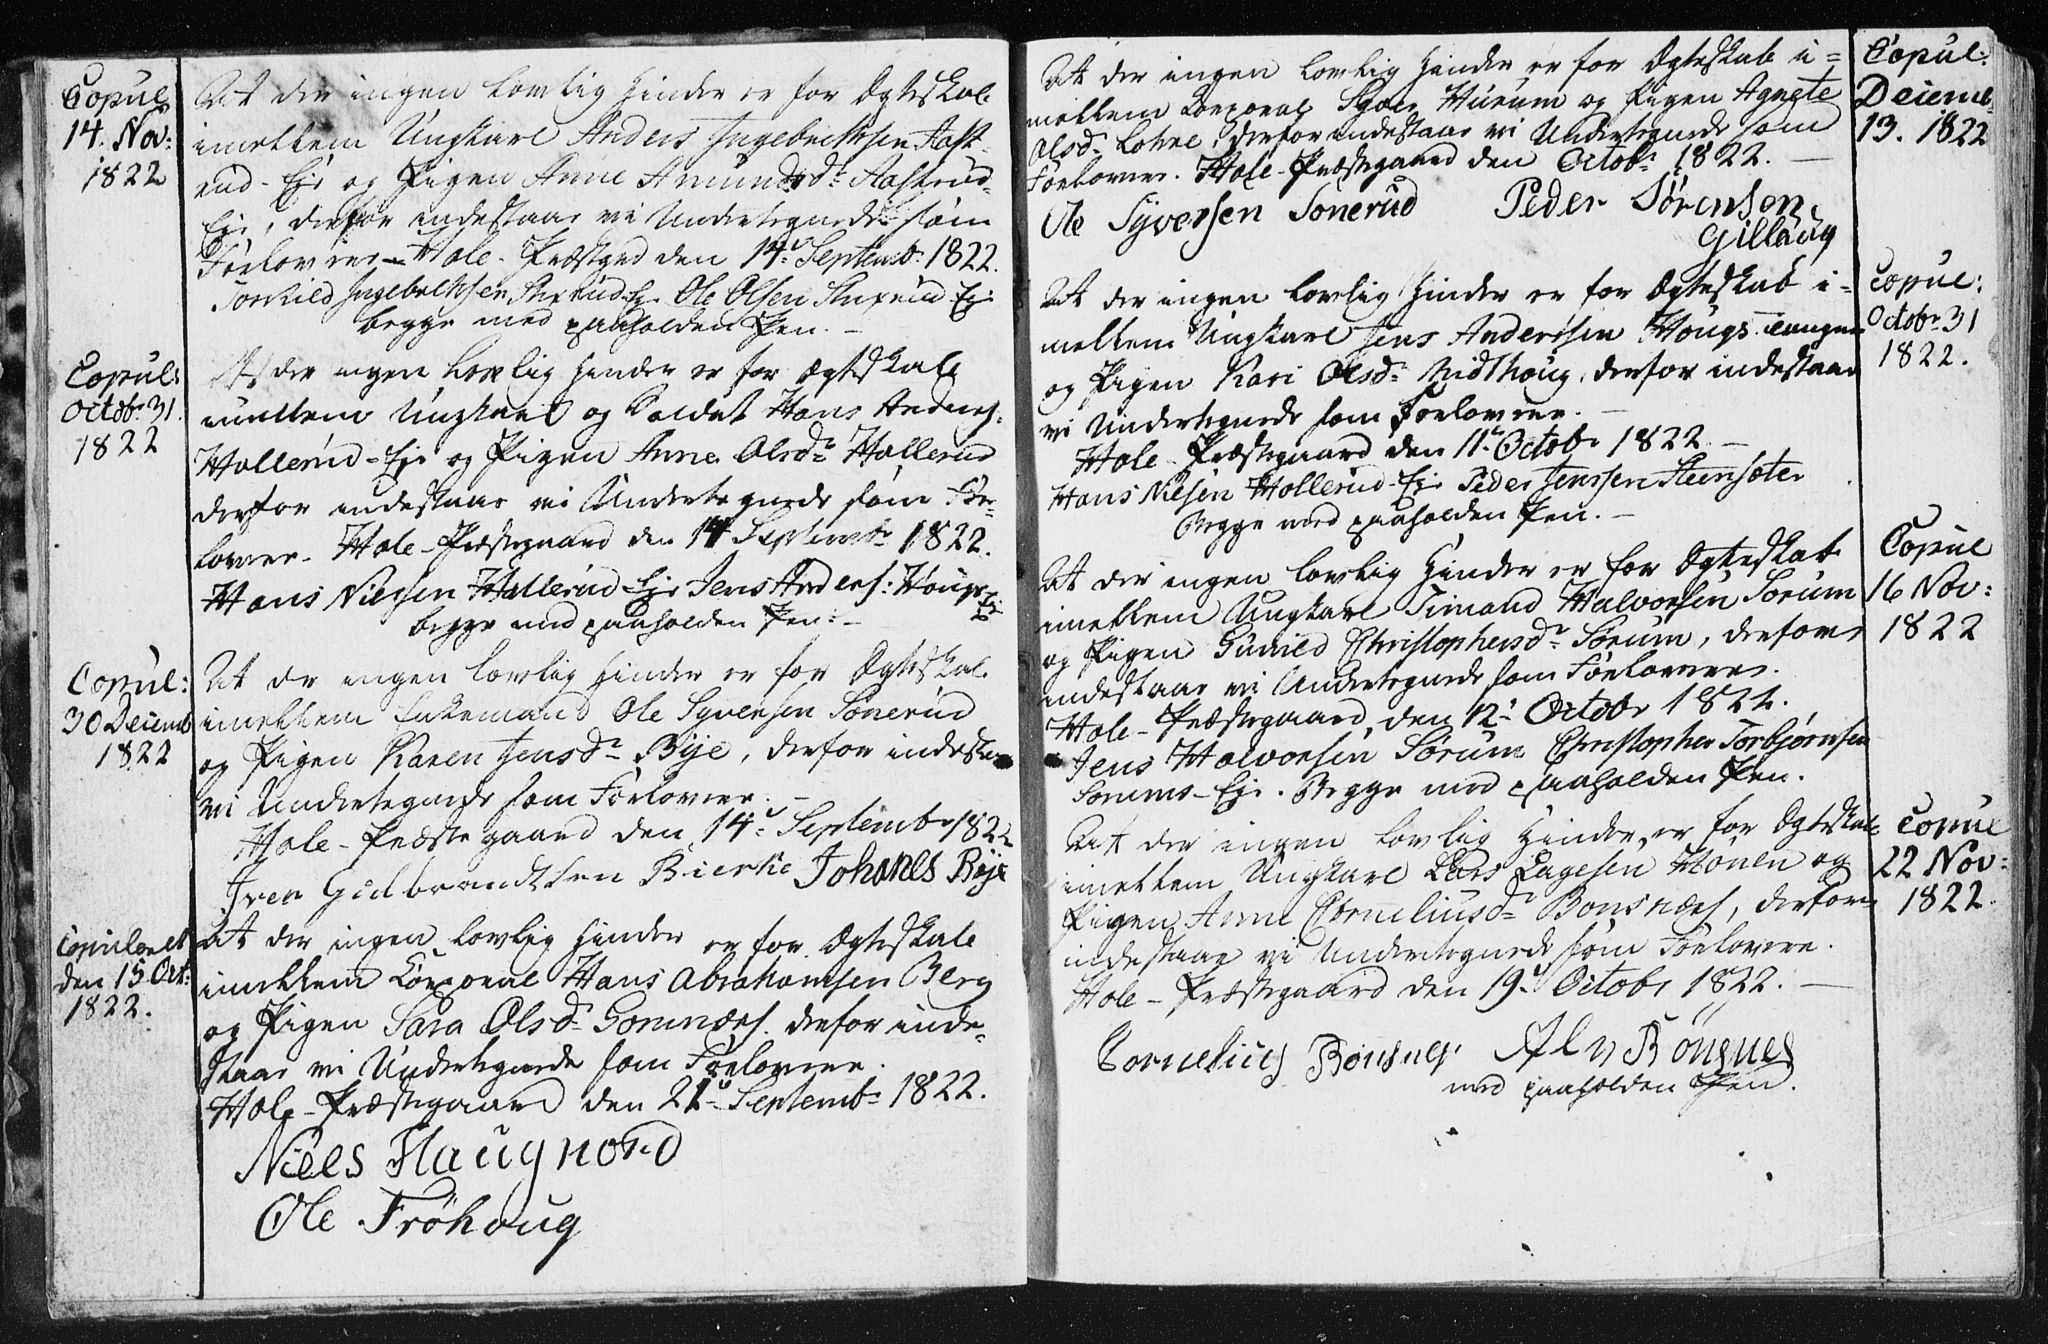 Copul
14. Nov:
1822
At der ingen lovlig Hinder er for Ægteskab
imellem Ungkarl Anders Ingebrethsen Aast-
rud-Eje og Pigen Anne Amundsdr Aastrud-
Eje, derfor indestaar vi Undertegnede som
Forlovere. Hole-Præstgrd den 14d Septembr 1822.
Torkild Ingebrethsen Eje Ole Olsen Eje
begge med paaholden Pen. –
Copul:
Octobr 31.
1822
At der ingen lovlig Hinder er for Ægteskab
imellem Ungkarl og Soldat Hans Anders:
Hollerud-Eje og Pigen Anne Olsdr Hollerud
derfor indestaar vi Undertegnede som For-
lovere. Hole-Præstegaard den 14 Septembr 1822.
Hans Nielsen Hollerud-Eje Jens Anders: Hougs Eje
begge med paaholden Pen: –
Copul:
30 Decemb
1822
At der ingen lovlig Hinder er for Ægteskab
imellem Enkemand Ole Syversen Sonerud
og Pigen Karen Jensdr Bye, derfor indestaar
vi Undertegnede som Forlovere. –
Hole-Præstegaard den 14d Septembr 1822
Iver Gulbrandtsen Bierke Johanes Bije
Copuleret
den 15 Oct:
1822.
At der ingen lovlig Hinder er for Ægteskab
imellem Corporal Hans Abrahamsen Berg
og Pigen Sara Olsdr Gomnæs. derfor inde-
staar vi Undertegnede som Forlovere.
Hole-Præstegaard den 21d Septembr 1822.
Niels Haugnord
Ole Fröhaug
Copul:
Decemb
13. 1822
At der ingen lovlig Hinder er for Ægteskab i-
mellem Corporal Syver Hurum og Pigen Agnete
Olsdr Lohne, derfor indestaar vi Undertegnede som
Forlovere. Hole-Præstegaard den Octobr 1822. –
Ole Syversen Sonerud Peder Sørensen
Gillaug
Copul:
Octobr 31
1822.
At der ingen lovlig Hinder er for Ægteskab i-
mellem Ungkarl Jens Anderssen Hougs
og Pigen Kari Olsdr Midthoug, derfor indestaar
vi Undertegnede som Forlovere. –
Hole Præstegaard den 11d Octobr 1822 –
Hans Nielsen Hollerud-Eje Peder Jenssen Steensæter
Begge med paaholden Pen. –
Copul
16 Nov:
1822
At der ingen lovlig Hinder er for Ægteskab
imellem Ungkarl Simand Halvorsen Sørum
og Pigen Gunild Christophersdr Sørum, derfor
indestaar vi Undertegnede som Forlovere.
Hole-Præstegaard, den 12d Octobr 1822.
Jens Halvorsen Sørum Christopher Torbjørnsen
Sørums-Eje. Begge med paaholden Pen.
Copul
22 Nov:
1822.
At der ingen lovlig Hinder er for Ægteskab
imellem Ungkarl Lars Lagesen Hønen og
Pigen Anne Corneliusdr Bonsnæs, derfor
indestaar vi Undertegnede som Forlovere.
Hole-Præstegaard den 19d Octobr 1822. –
Cornelius Bønsnes Alv Bönsnes
med paaholden Pen.